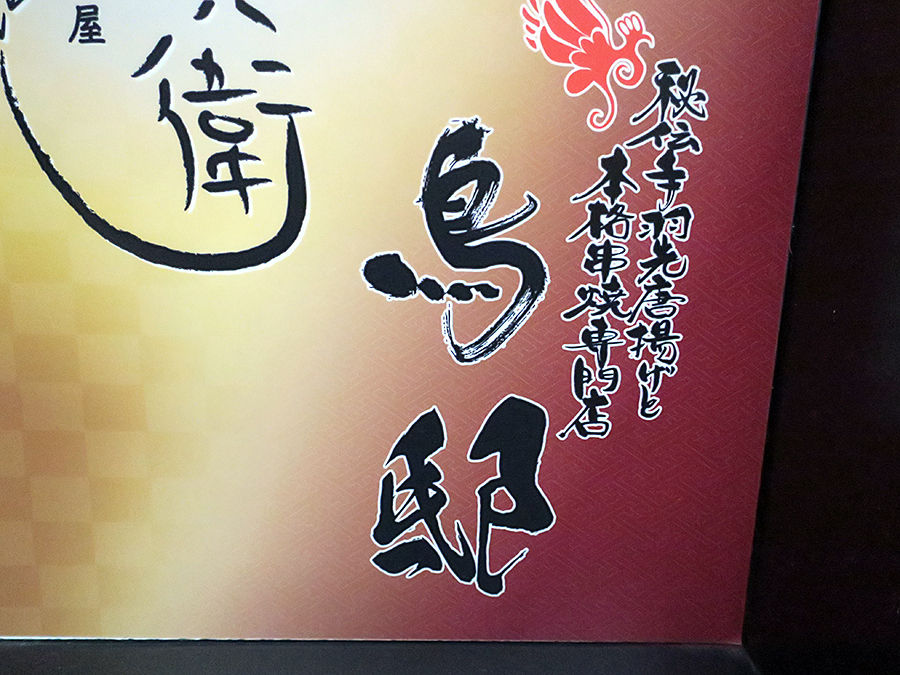 秘伝手羽先唐揚げと
本格串焼専門店
鳥邸
衛
屋